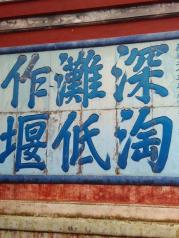 深淘灘
低作堰